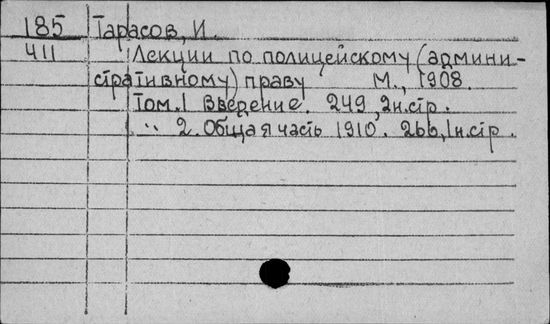 185 Тарасов, И.
411 Лекции по полицейскому (админи-
стративному) праву М., 1908.
Том. I Введение. 249, 2н.стр.
" 2. Общая часть 1910. 266, 1н.стр.